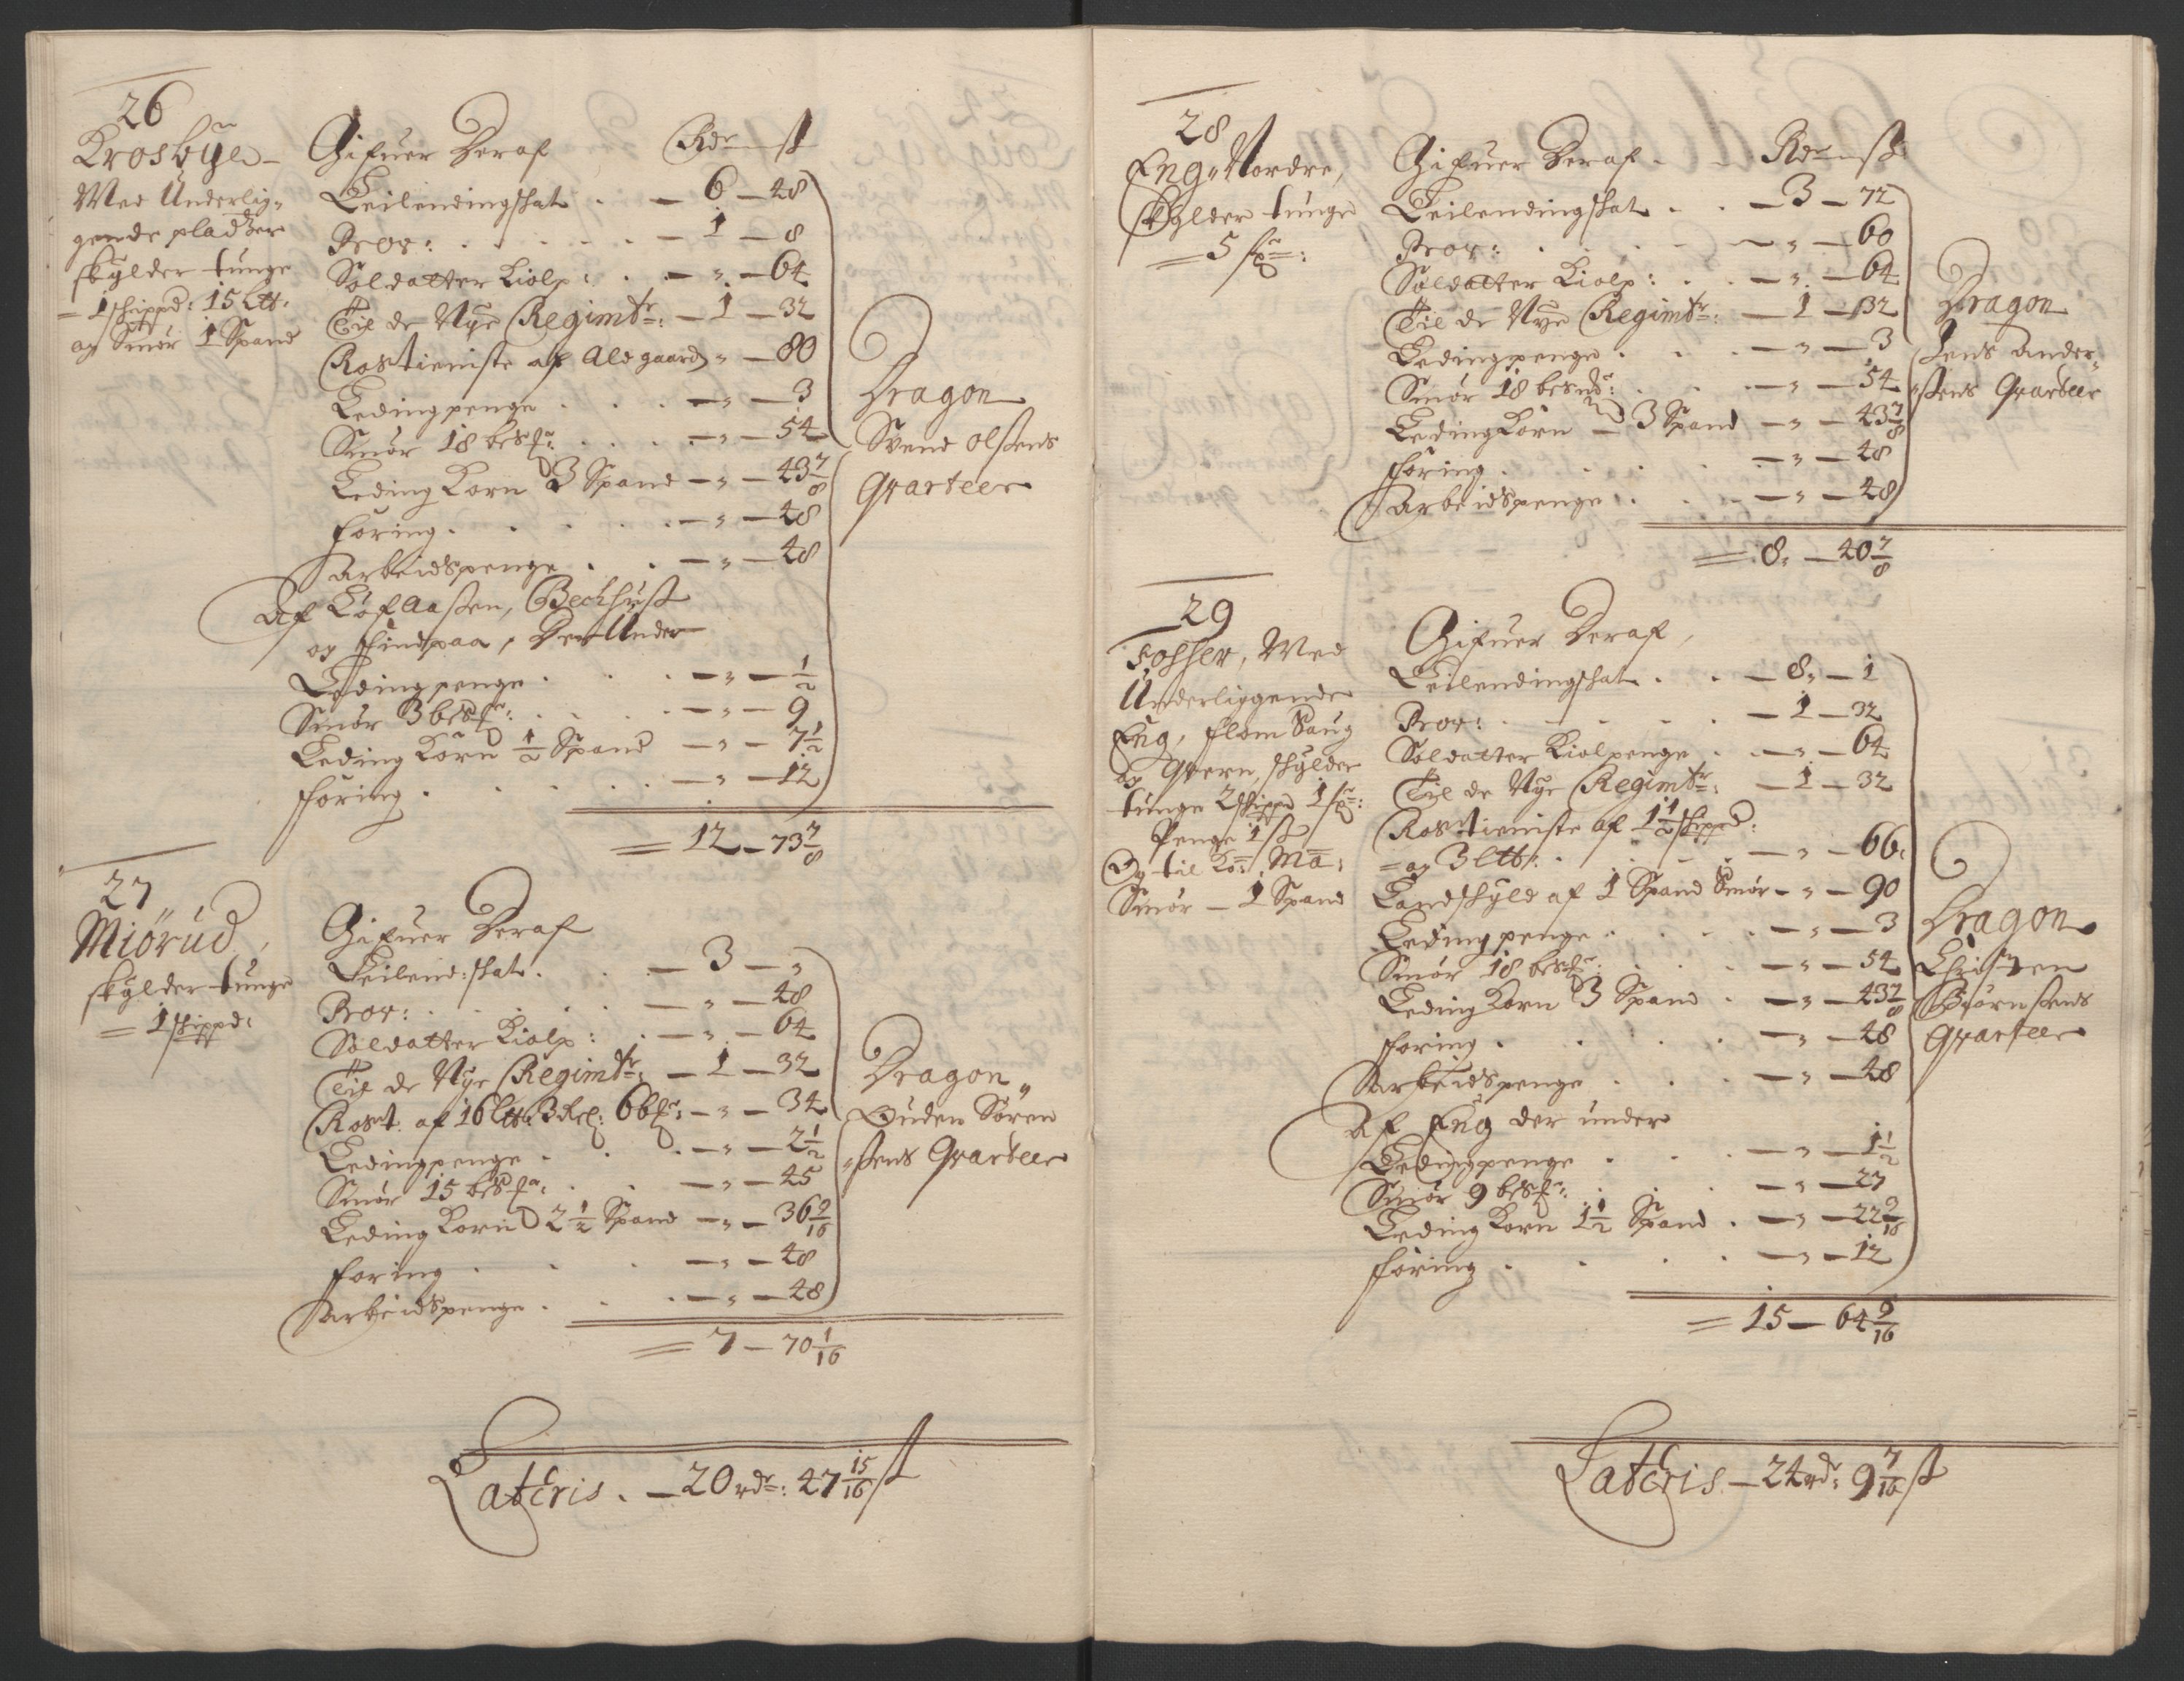 26
Krosbÿe –
Med Underlig„
gende pladtzer
skÿlder tunge
– 1 skippd: 15 Ltb:
og Smör 1 Spand
Gifuer Deraf Rdr – ß
Leilendingskat . – 6 – 48
Prov: . . . . . – 1 – 8
Soldatter Kiolp: . . – „ – 64
Til de Nÿe Regimtr: – 1 – 32
Rostieniste af Ald gaard „ – 80
Ledingpenge . . . – „ – 3
Smör 18 besr: . . . – „ – 54
Leding Korn 3 Spand – „ – 43 7/8
foring . . . . . – „ – 48
Arbeidspenge . . – „ – 48
Af Löfaassen, Bechhust
og Der Under
Ledingpenge . . . – „ – 1/2
Smör 3 besr: . . . – „ – 9
Leding Korn 1/2 Spand – „ – 7 1/2
foring . . . . – „ – 12
= 12 – 73 7/8
Dragon
Svend Olsens
Qvarteer
27
Miörud,
skÿlder tunge
= 1 skippd:
Gifuer Deraf
Leilend: skat . . . – 3 – „
Prov: . . . . . – „ – 48
Soldatter Kiolp: . . – „ – 64
Til de Nÿe Regimtr: – 1 – 32
Rost: af 16 Ltb: 3 Rel: 6 br: – „ – 34
Ledingpenge . . . – „ – 2 1/2
Smör 15 besr: . . – „ – 45
Leding Korn 2 1/2 Spand – „ – 36 9/16
foring . . . – „ – 48
Arbeidspenge . . . – „ – 48
= 7 – 70 1/16
Dragon„
Ouden Sören
„sens Qvarteer
Lateris . – 20 rdr: 47 15/16 ß
28
Eng Nordre,
skÿlder tunge
= 5 :
Gifuer Deraf . – Rdr – ß
Leilendingskat . . – 3 – 72
Prov: . . . . – „ – 60
Soldatter Kiolp: . . – „ – 64
Til de Nÿe Regimtr: – 1 – 32
Ledingpenge . . . – „ – 3
Smör 18 besmr: . . – „ – 54
Leding Korn – 3 Spand – „ – 43 7/8
foring . . . . . – „ – 48
Arbeidspenge . . . – „ – 48
= 8 „ – 40 7/8
Dragon
Jens Ander„
„sens Qvarteer
29
Fosser, Med
Underliggende
Eng, flom Saug
og Qvern, skÿlder
tunge 2 skippd 1 :
Penge 1 ß
Og til Ko: Ma:
Smör – 1 Spand
Gifuer Deraf,
Leilendingskat . . – 8 „ – 1
Prov: . . . . . – 1 – 32
Soldatter Kiolpenge . – „ – 64
Til de Nÿe Regimtr: – 1 – 32
Rostieniste af 1 1/2 skippd:
= og 3 Ltb: . . . . – „ – 66
Landskÿld af 1 Spand Smör – „ – 90
Ledingpenge . . . . – „ – 3
Smör 18 besr: . . . – „ – 54
Leding Korn 3 Spand . – „ – 43 7/8
foring . . . . . – „ – 48
Arbeidspenge . . . – „ – 48
Af Eng der under
Ledingpenge . . . – „ – 1 1/2
Smör 9 besr: . . . – „ – 27
Leding Korn 1 1/2 Spand . – „ – 22 3/16
foring . . . . – „ – 12
= 15 – 64 9/16
Dragon
Christen
Biörnsens
Qvarteer
Lateris – 24 rdr: 9 7/16 ß